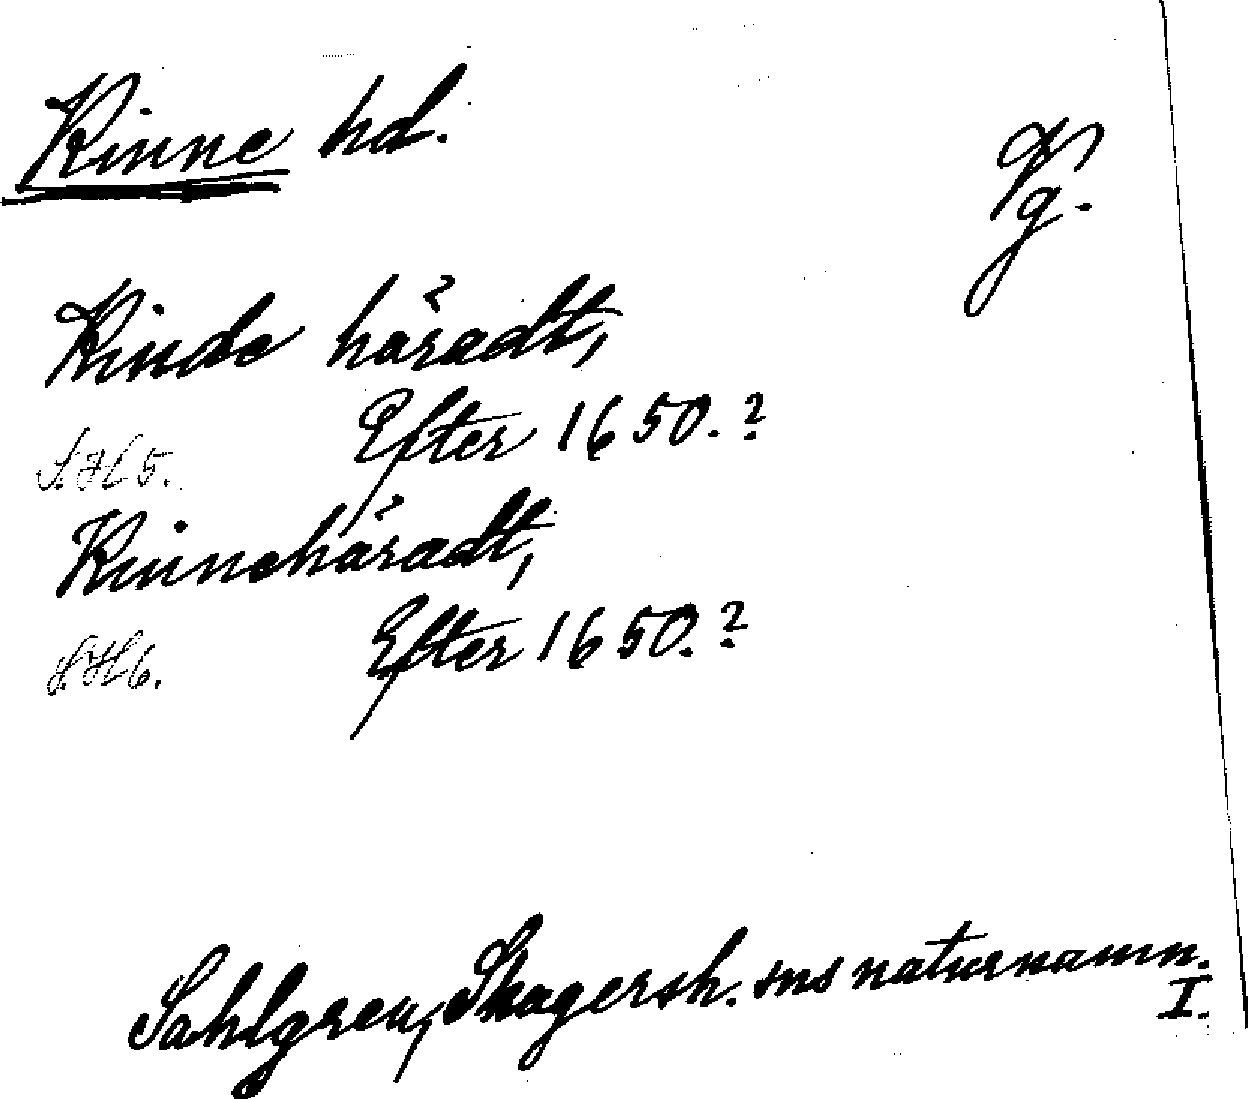 Kinne hd.
Vg.
Kinde häradt,
Efter 1650.?
S. H 5.
Kinnehäradt,
Efter 1650.?
S. H 6.
Sahlgren, Skagersh. sns naturnamn.
I.